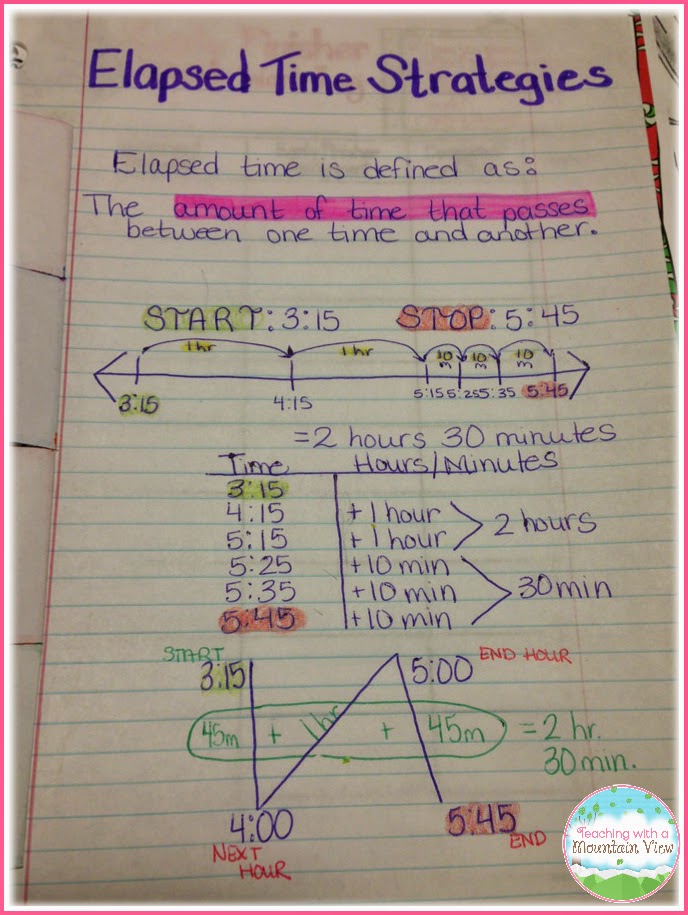 Elapsed Time Strategies
Elapsed time is defined as:
The amount of time that passes
between one time and another.
START: 3:15 STOP: 5:45
1 hr 1 hr 10 m 10 m 10 m
3:15 4:15 5:15 5:25 5:35 5:45
=2 hours 30 minutes
Time Hours/Minutes
3:15
4:15 +1 hour
5:15 +1 hour 2 hours
5:25 +10 min
5:35 +10 min 30 min
5:45 +10 min
START END HOUR
3:15 5:00
45m + 1 hr + 45m = 2 hr.
30 min.
4:00 5:45
NEXT END
HOUR
Teaching with a
Mountain View